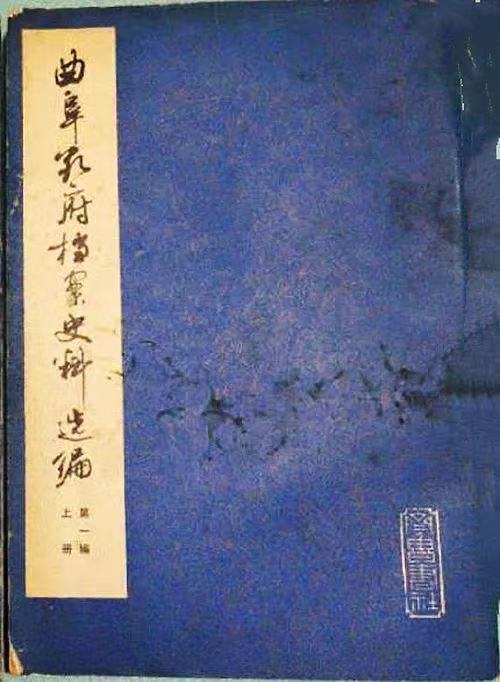 曲阜孔府档案史料选编
第一编
上册
齐鲁书社